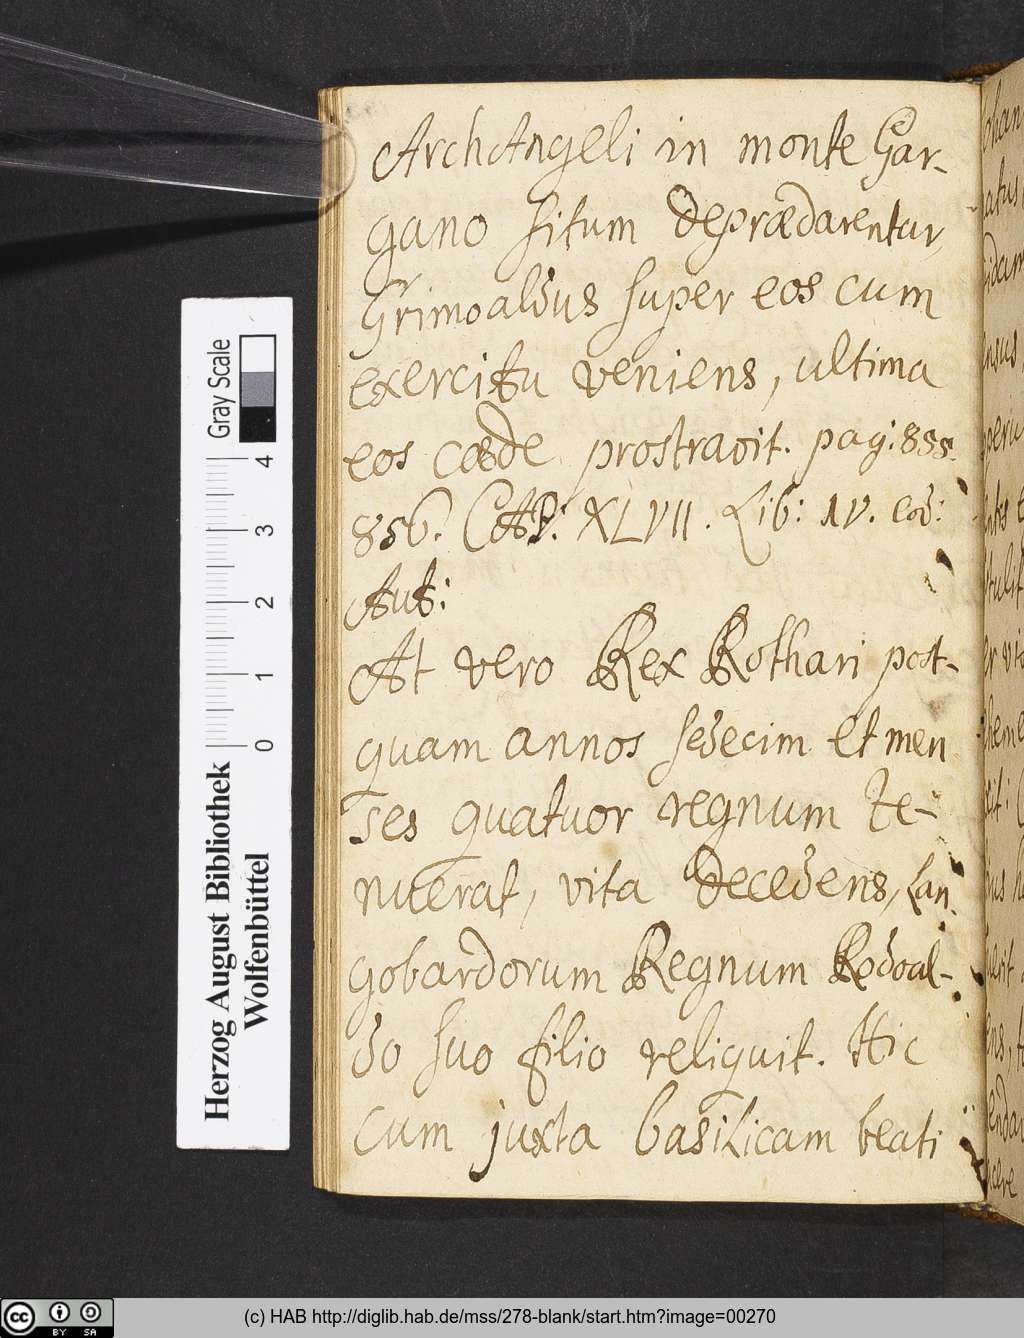 ArchAngeli in monte Gar-
gano situm deprædarentur,
Grimoaldus super eos cum
exercitu veniens, ultima
eos cæde prostravit. pag: 855.
856. CAP: XLVII. Lib: IV. eod:
Aut:
At vero Rex Rothari post-
quam annos sedecim et men
ses quatuor regnum te-
nuerat, vita decedens, Lan-
gobardorum Regnum Rodoal-
do suo filio reliquit. Hic
cum juxta basilicam beati
Gray Scale
4
3
2
1
0
Herzog August Bibliothek
Wolfenbüttel
(c) HAB http://diglib.hab.de/mss/278-blank/start.htm?image=00270
cc BY SA